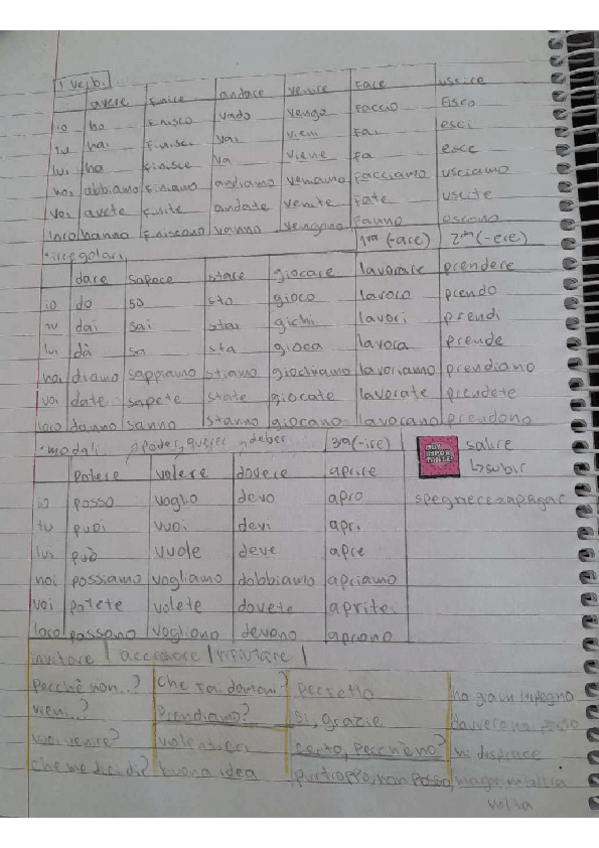 I verb.
avere finire andare venire fare uscire
io ho finisco vado vengo faccio Eisco
tu hai finisci vai vieni fai esci
lui ha finisce va viene fa esce
noi abbiamo finiamo andiamo veniamo facciamo usciamo
voi avete finite andate venite fate uscite
loro hanno finiscono vanno vengono fanno escono
*irregolari 1ra (-are) 2nda (-ere)
dare sapere stare giocare lavorare prendere
io do so sto gioco lavoro prendo
tu dai sai stai gichi lavori prendi
lui dà sa sta gioca lavora prende
noi diamo sappiamo stiamo giochiamo lavoriamo prendiano
voi date sapete state giocate lavorate prendete
loro danno sanno stanno giocano lavorano prendono
*modali poder, querer deber 3ra (-ire)
MUY IMPORTANTE!
salire
↳subir
potere volere dovere aprire
io posso voglio devo apro spegnere→apagar
tu puoi vuoi devi apri
lui può vuole deve apre
noi possiamo vogliamo dobbiamo apriamo
voi potete volete dovete aprite
loro possono vogliono devono aprono
invitare | accettare | rifiutare |
Perchè non..? Che fai domani? perfetto ho già un impegno
vieni..? Prendiamo? Si, grazie davvero non posso
vuoi venire? volentieri certo, perchè no? mi dispiace
che me dici di? buona idea purtroppo, non posso magari un'altra
volta